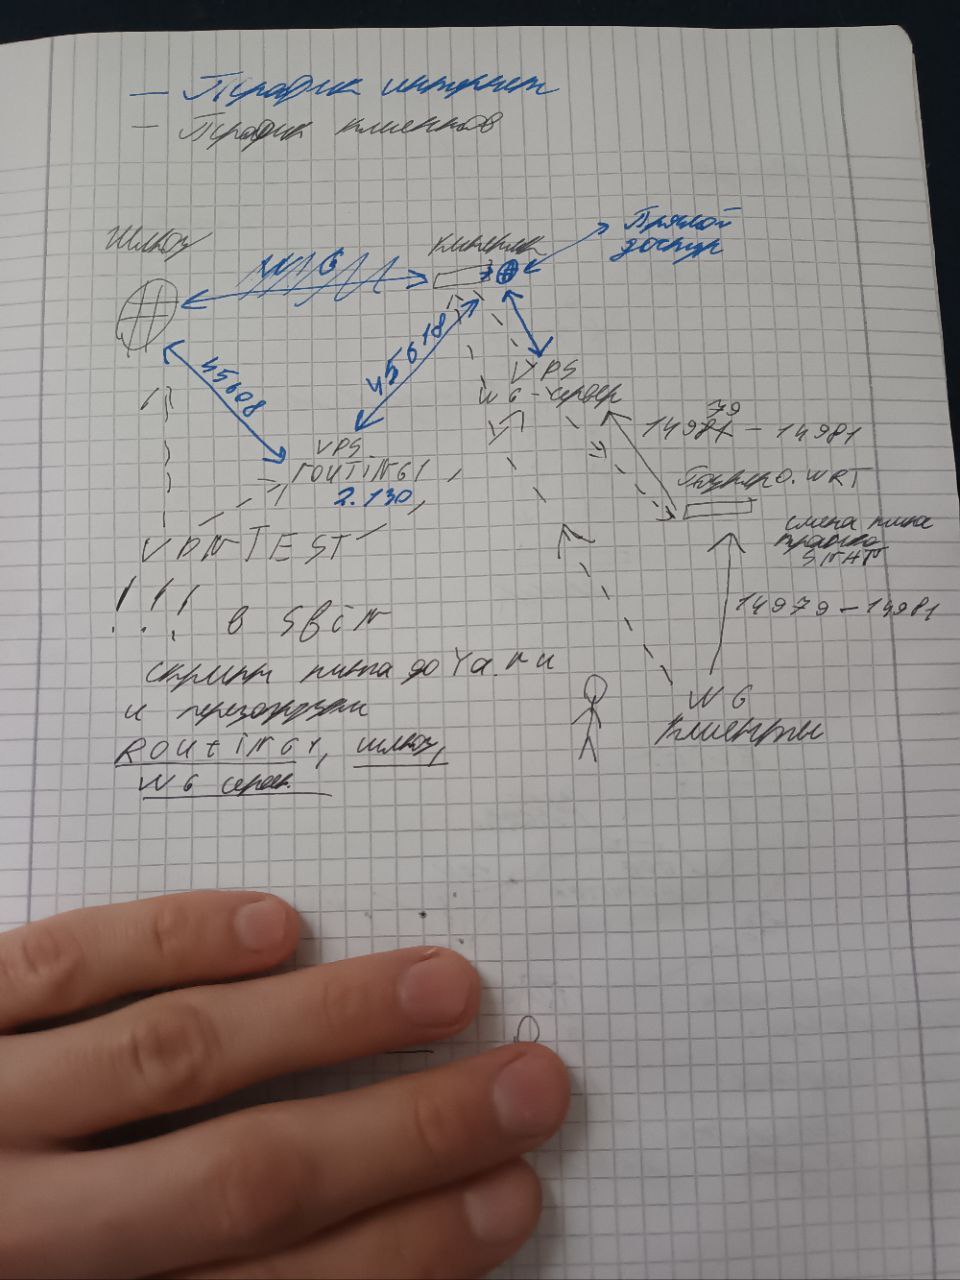 — Трафик интернет
— Трафик клиентов
Шлюз
WG
кинетик
Прямой
доступ
45608
45618
VPS
WG-сервер
VPS
ROUTING1
2.130
79
14981 — 14981
.WRT
VPNTEST
смена пина
SNAT
14979 — 14981
!!! в sbin
скрипт пинга до Ya.ru
и перезагрузки
ROUtiNG1, шлюз,
WG серв.
WG
клиенты